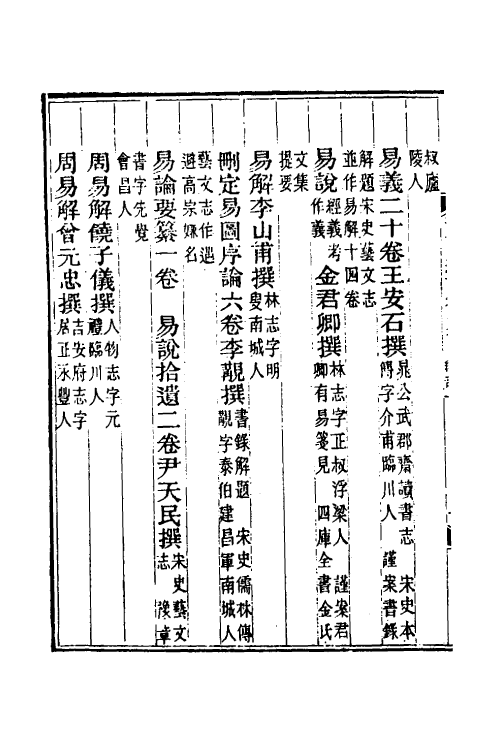 叔廬
陵人
易義二十卷王安石撰 晁公武郡齋讀書志 宋史本
傳字介甫臨川人 謹案書錄
解題宋史藝文志
並作易解十四卷
易說 經義考
作義 金君卿撰 林志字正叔浮梁人 謹案君
卿有易箋見 四庫全書金氏
文集
提要
易解李山甫撰 林志字明
叟南城人
刪定易圖序論六卷李覯撰 書錄解題 宋史儒林傳
覯字泰伯建昌軍南城人
藝文志作遘
避高宗嫌名
易論要纂一卷 易說拾遺二卷尹天民撰 宋史藝文
志 豫章
書字先覺
會昌人
周易解饒子儀撰 人物志字元
禮臨川人
周易解曾元忠撰 吉安府志字
居正永豐人